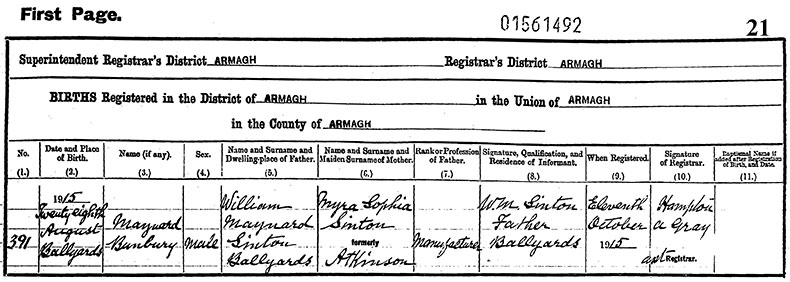 First Page.
01561492
21
Superintendent Registrar's District ARMAGH Registrar's District ARMAGH
BIRTHS Registered in the District of ARMAGH in the Union of ARMAGH
in the County of ARMAGH
No. (1.)
Date and Place of Birth. (2.)
Name (if any). (3.)
Sex. (4.)
Name and Surname and Dwelling-place of Father. (5.)
Name and Surname and Maiden Surname of Mother. (6.)
Rank or Profession of Father. (7.)
Signature, Qualification, and Residence of Informant. (8.)
When Registered. (9.)
Signature of Registrar. (10.)
Baptismal Name if added after Registration of Birth, and Date. (11.)
391
1915
Twenty eighth
August
Ballyards
Maynard
Bunbury
male
William
Maynard
Sinton
Ballyards
Myra Sophia
Sinton
formerly
Atkinson
Manufacturer
Wm. Sinton
Father
Ballyards
Eleventh
October
1915
Hampton
a Gray
asst Registrar.